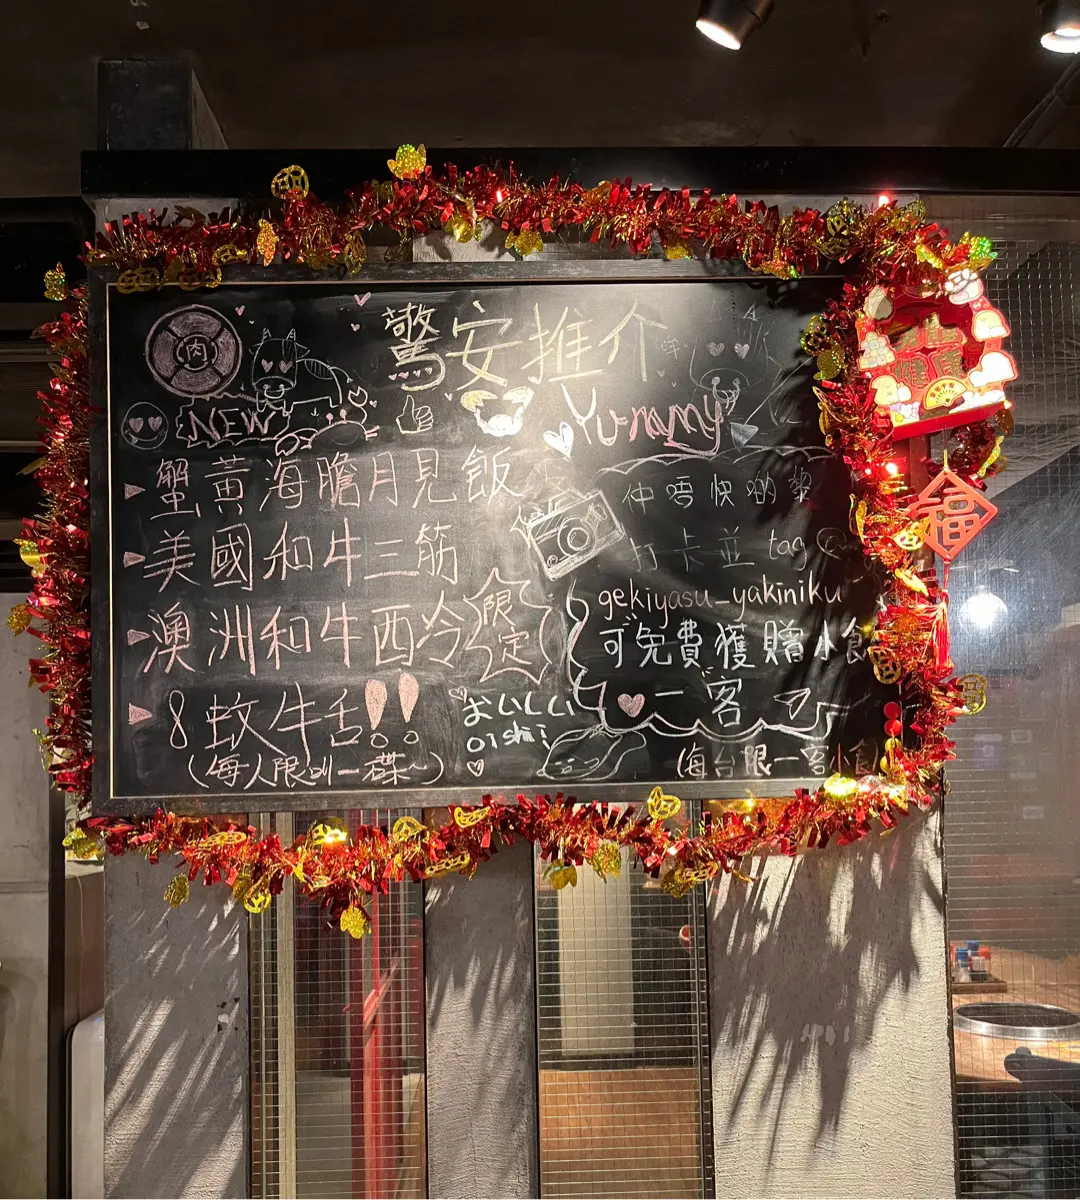 肉
驚安推介
NEW
Yummy
蟹黃海膽月見飯
美國和牛三筋
澳洲和牛西冷
限定
8蚊牛舌!!
(每人限叫一碟~)
おいしい
oishi!
仲唔快啲黎
打卡並 tag
gekiyasu_yakiniku
可免費獲贈小食
一客
(每台限一客小食
福